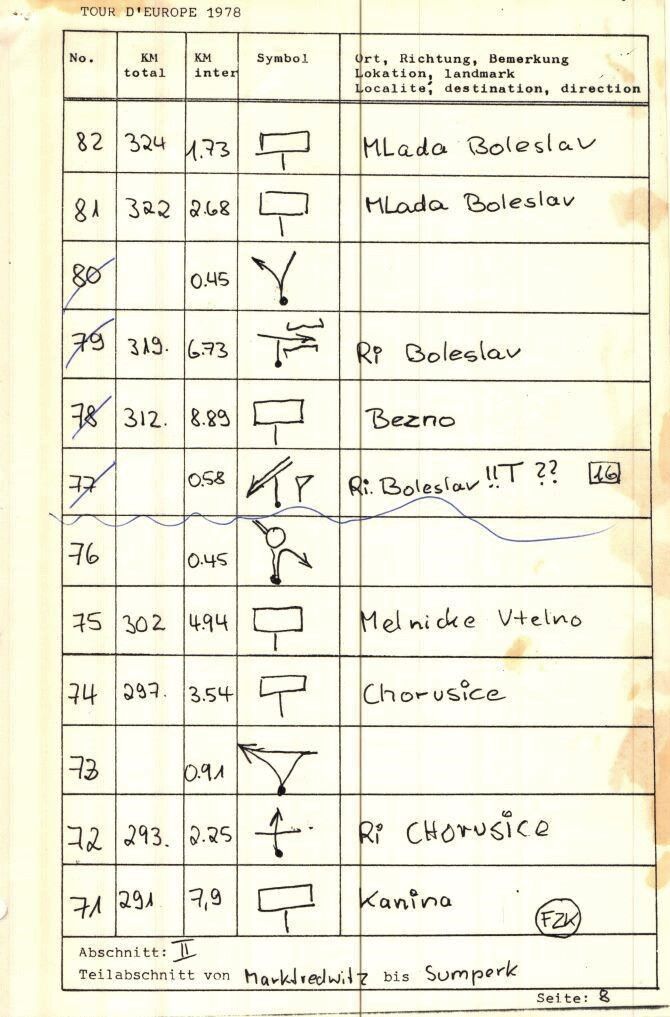 TOUR D'EUROPE 1978
No. KM total KM inter Symbol Ort, Richtung, Bemerkung
Lokation, landmark
Localité, destination, direction
82 324 1.73 MLada Boleslav
81 322 2.68 MLada Boleslav
80 0.45
79 319. 6.73 Ri Boleslav
78 312. 8.89 Bezno
77 0.58 Ri. Boleslav !!T ?? 16
76 0.45
75 302 4.94 Melnicke Vtelno
74 297. 3.54 Chorusice
73 0.91
72 293. 2.25 Ri CHORUSICE
71 291 7,9 Kanina FZK
Abschnitt: II
Teilabschnitt von Marktredwitz bis Sumperk
Seite: 8